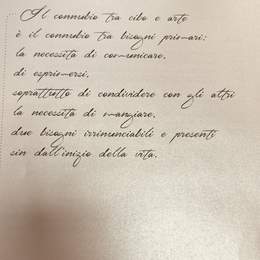 Il connubio tra cibo e arte
è il connubio tra bisogni primari:
la necessità di comunicare,
di esprimersi,
soprattutto di condividere con gli altri
la necessità di mangiare,
due bisogni irrinunciabili e presenti
sin dall'inizio della vita.